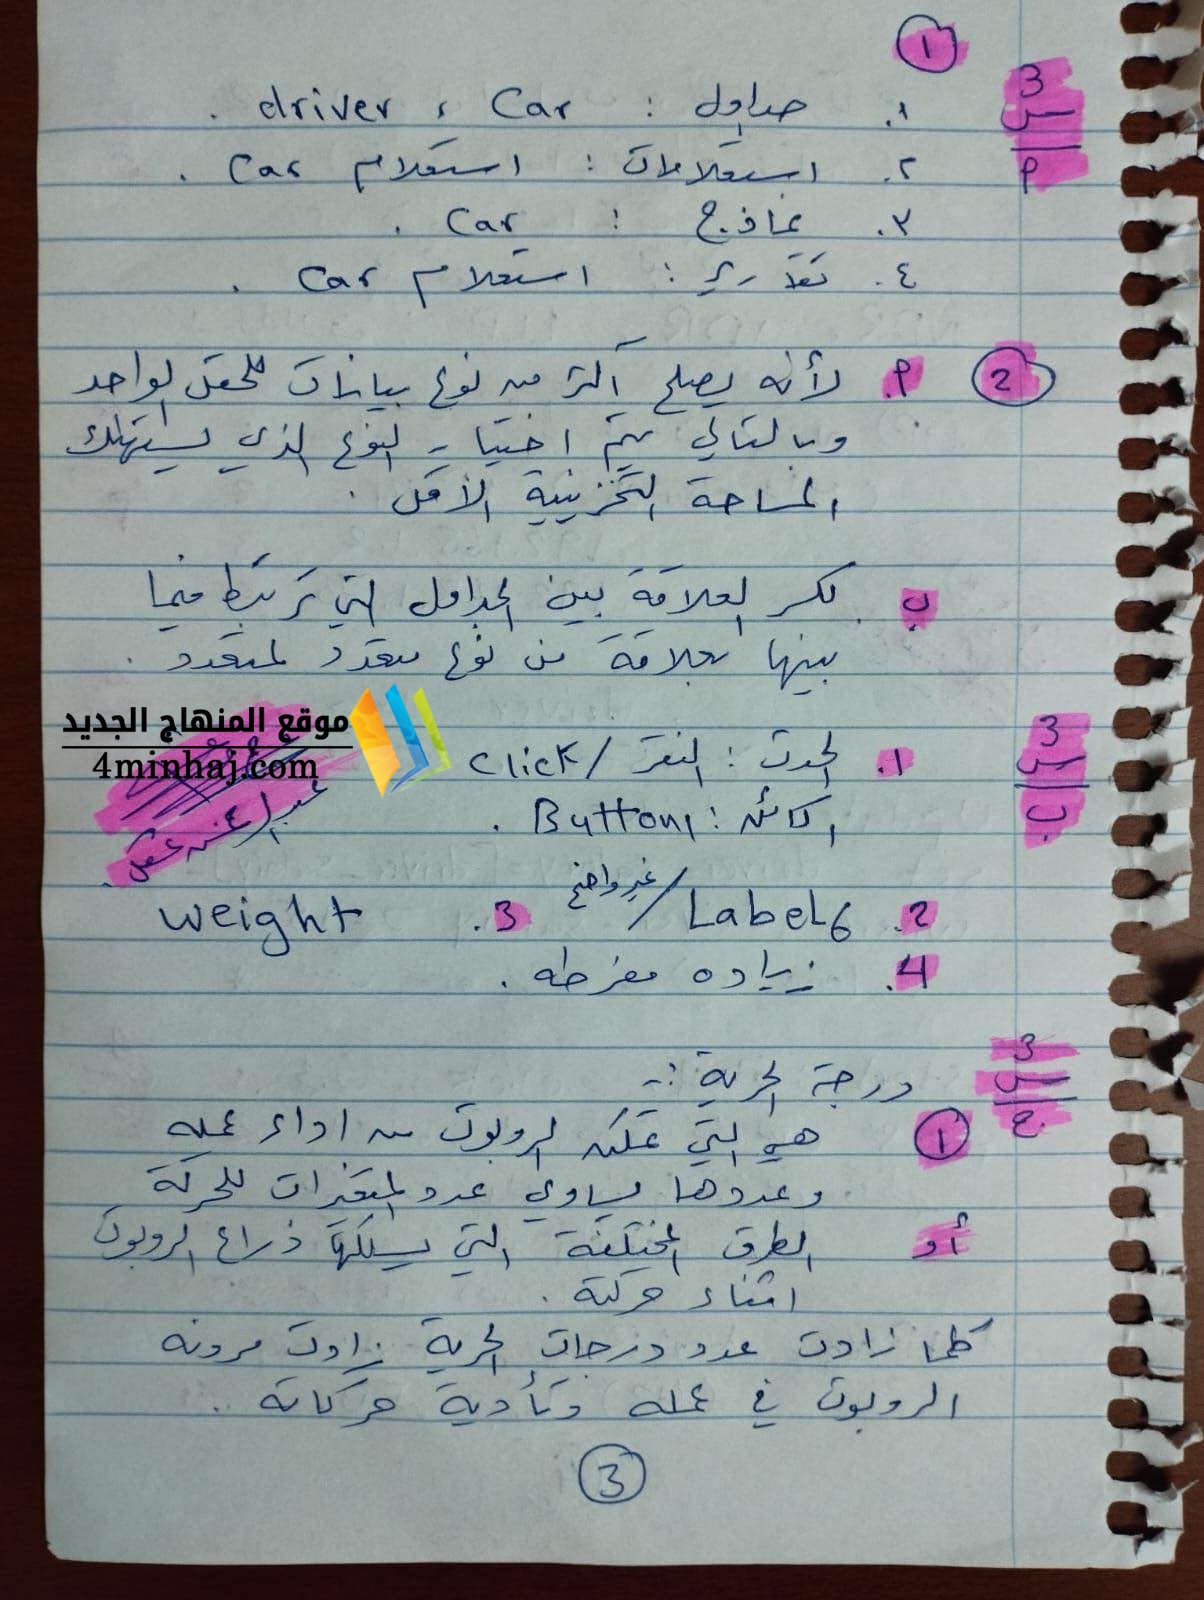 س3 أ
1
١. جداول : driver ، Car .
٢. استعلامات : استعلام Car .
٣. نماذج : Car .
٤. تقارير : استعلام Car .
2
أ. لأنه يصلح أكثر من نوع بيانات للحقل الواحد
وبالتالي يتم اختيار النوع الذي يستهلك
المساحة التخزينية الأقل .
ب. كسر العلاقة بين الجداول التي ترتبط فيما
بينها بعلاقة من نوع متعدد لمتعدد .
موقع المنهاج الجديد
4minhaj.com
س3 ب
١. الحدث : النقر / click
الكائن : Button1 .
2. Label6 / غير واضح 3. weight
4. زياده مفرطه .
س3 ج
درجة الحرية :-
1 هي التي تمكن الروبوت من اداء عمله
وعددها يساوي عدد المتغيرات للحركة
أو الطرق المختلفة التي يسلكها ذراع الروبوت
اثناء حركته .
كلما زادت عدد درجات الحرية زادت مرونه
الروبوت في عمله وتأدية حركاته .
3